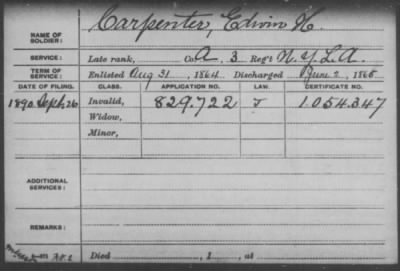 Carpenter, Edwin H.
NAME OF SOLDIER:
SERVICE: Late rank, Co. A, 3 Reg't N.Y.L.A.
TERM OF SERVICE: Enlisted Aug 31, 1864 Discharged June 2, 1865
DATE OF FILING. CLASS. APPLICATION NO. LAW. CERTIFICATE NO.
1890 Sept 26 Invalid, 829.722 J 1054.347
Widow,
Minor,
ADDITIONAL SERVICES:
REMARKS:
Died , 1 , at